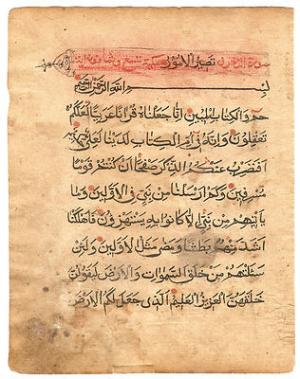 سورة الزخرف
بسم الله الرحمن الرحيم
حم والكتاب المبين انا جعلناه قرانا عربيا لعلكم
تعقلون وانه في ام الكتاب لدينا لعلي حكيم
افنضرب عنكم الذكر صفحا ان كنتم قوما
مسرفين وكم ارسلنا من نبي في الاولين وما
ياتيهم من نبي الا كانوا به يستهزؤن فاهلكنا
اشد منهم بطشا ومضى مثل الاولين ولئن
سالتهم من خلق السموات والارض ليقولن
خلقهن العزيز العليم الذي جعل لكم الارض